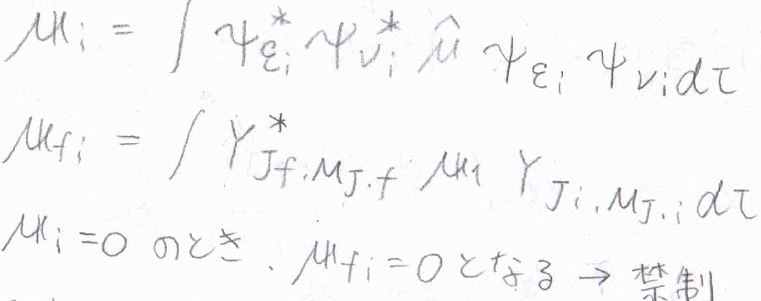 μ_i = ∫ ψ_{ε_i}^* ψ_{ν_i}^* μ̂ ψ_{ε_i} ψ_{ν_i} dτ
μ_{fi} = ∫ Y_{J_f, M_{J,f}}^* μ_i Y_{J_i, M_{J,i}} dτ
μ_i=0 のとき、μ_{fi}=0となる → 禁制